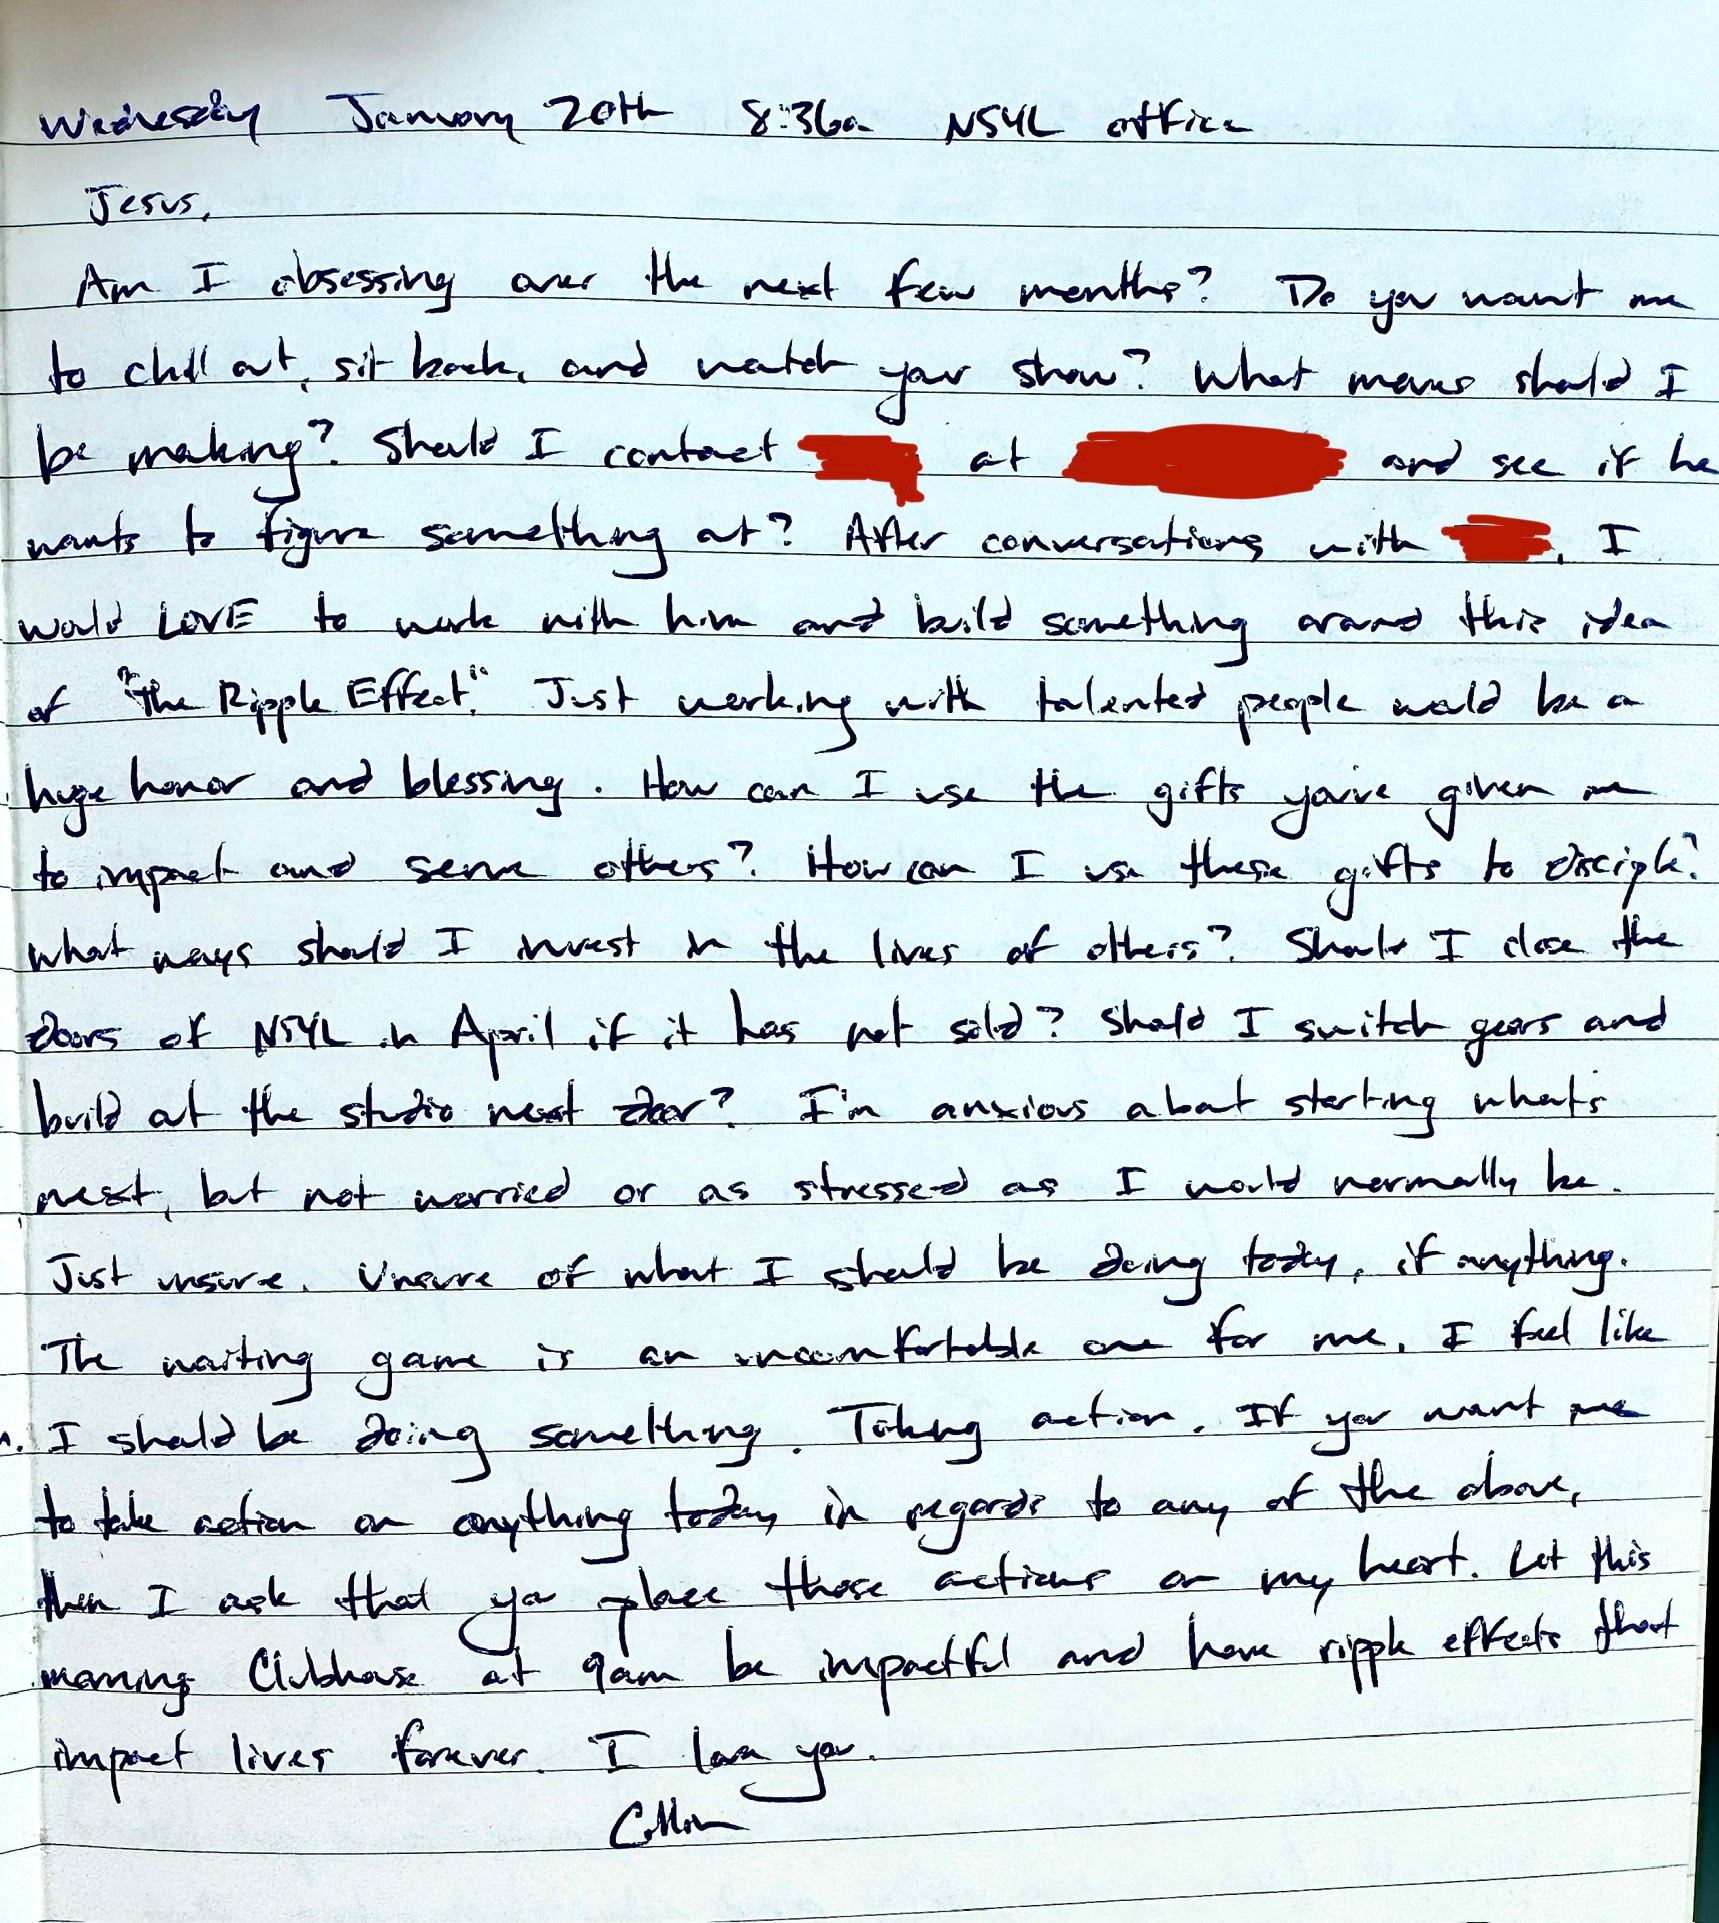 Wednesday January 20th 8:36a NSYL office
Jesus,
Am I obsessing over the next few months? Do you want me
to chill out, sit back, and watch your show? What moves should I
be making? Should I contact at and see if he
wants to figure something out? After conversations with , I
would LOVE to work with him and build something around this idea
of "The Ripple Effect". Just working with talented people would be a
huge honor and blessing. How can I use the gifts you've given me
to impact and serve others? How can I use these gifts to disciple?
What ways should I invest in the lives of others? Should I close the
doors of NSYL in April if it has not sold? Should I switch gears and
build out the studio next door? I'm anxious about starting whats
next, but not worried or as stressed as I would normally be.
Just unsure. Unsure of what I should be doing today, if anything.
The waiting game is an uncomfortable one for me. I feel like
I should be doing something. Taking action. If you want me
to take action on anything today in regards to any of the above,
then I ask that you place those actions on my heart. Let this
morning Clubhouse at 9am be impactful and have ripple effects that
impact lives forever. I love you.
Collin